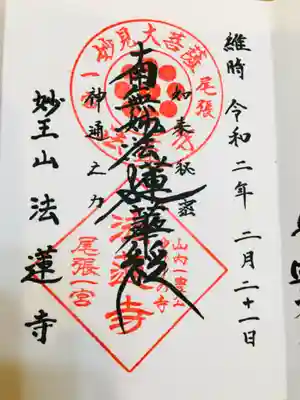 維時 令和二年 二月二十一日
如来秘密
南無妙法蓮華経
神通之力
妙王山 法蓮寺
妙見大菩薩
尾張
一宮
山内一豊公
の寺
法蓮寺
尾張一宮